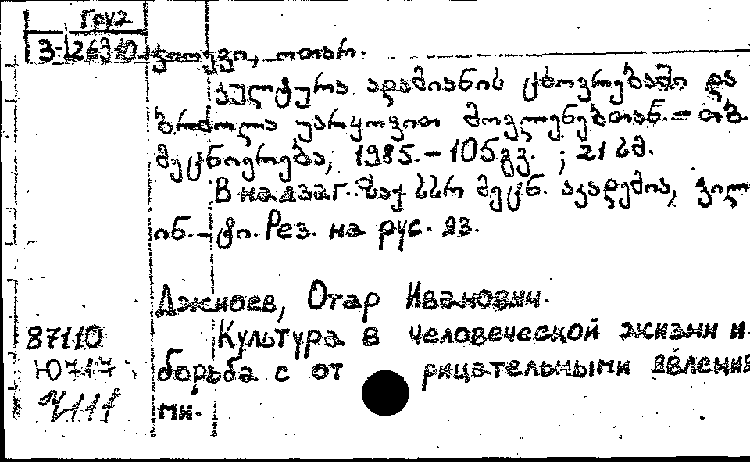 Груз
3-26310
ჯიოევი, ოთარ.
კულტურა ადამიანის ცხოვრებაში და
ბრძოლა უარყოფით მოვლენებთან. – თბ.
მეცნიერება, 1985. – 105გვ. ; 21 სმ.
В надзаг. საქ სსრ მეცნ. აკადემია, ფილ
ინ.-ტი. Рез. на рус. яз.
Джиоев, Отар Иванович.
87110 Культура в человеческой жизни и
Ю717 борьба с от рицательными явления
ми.